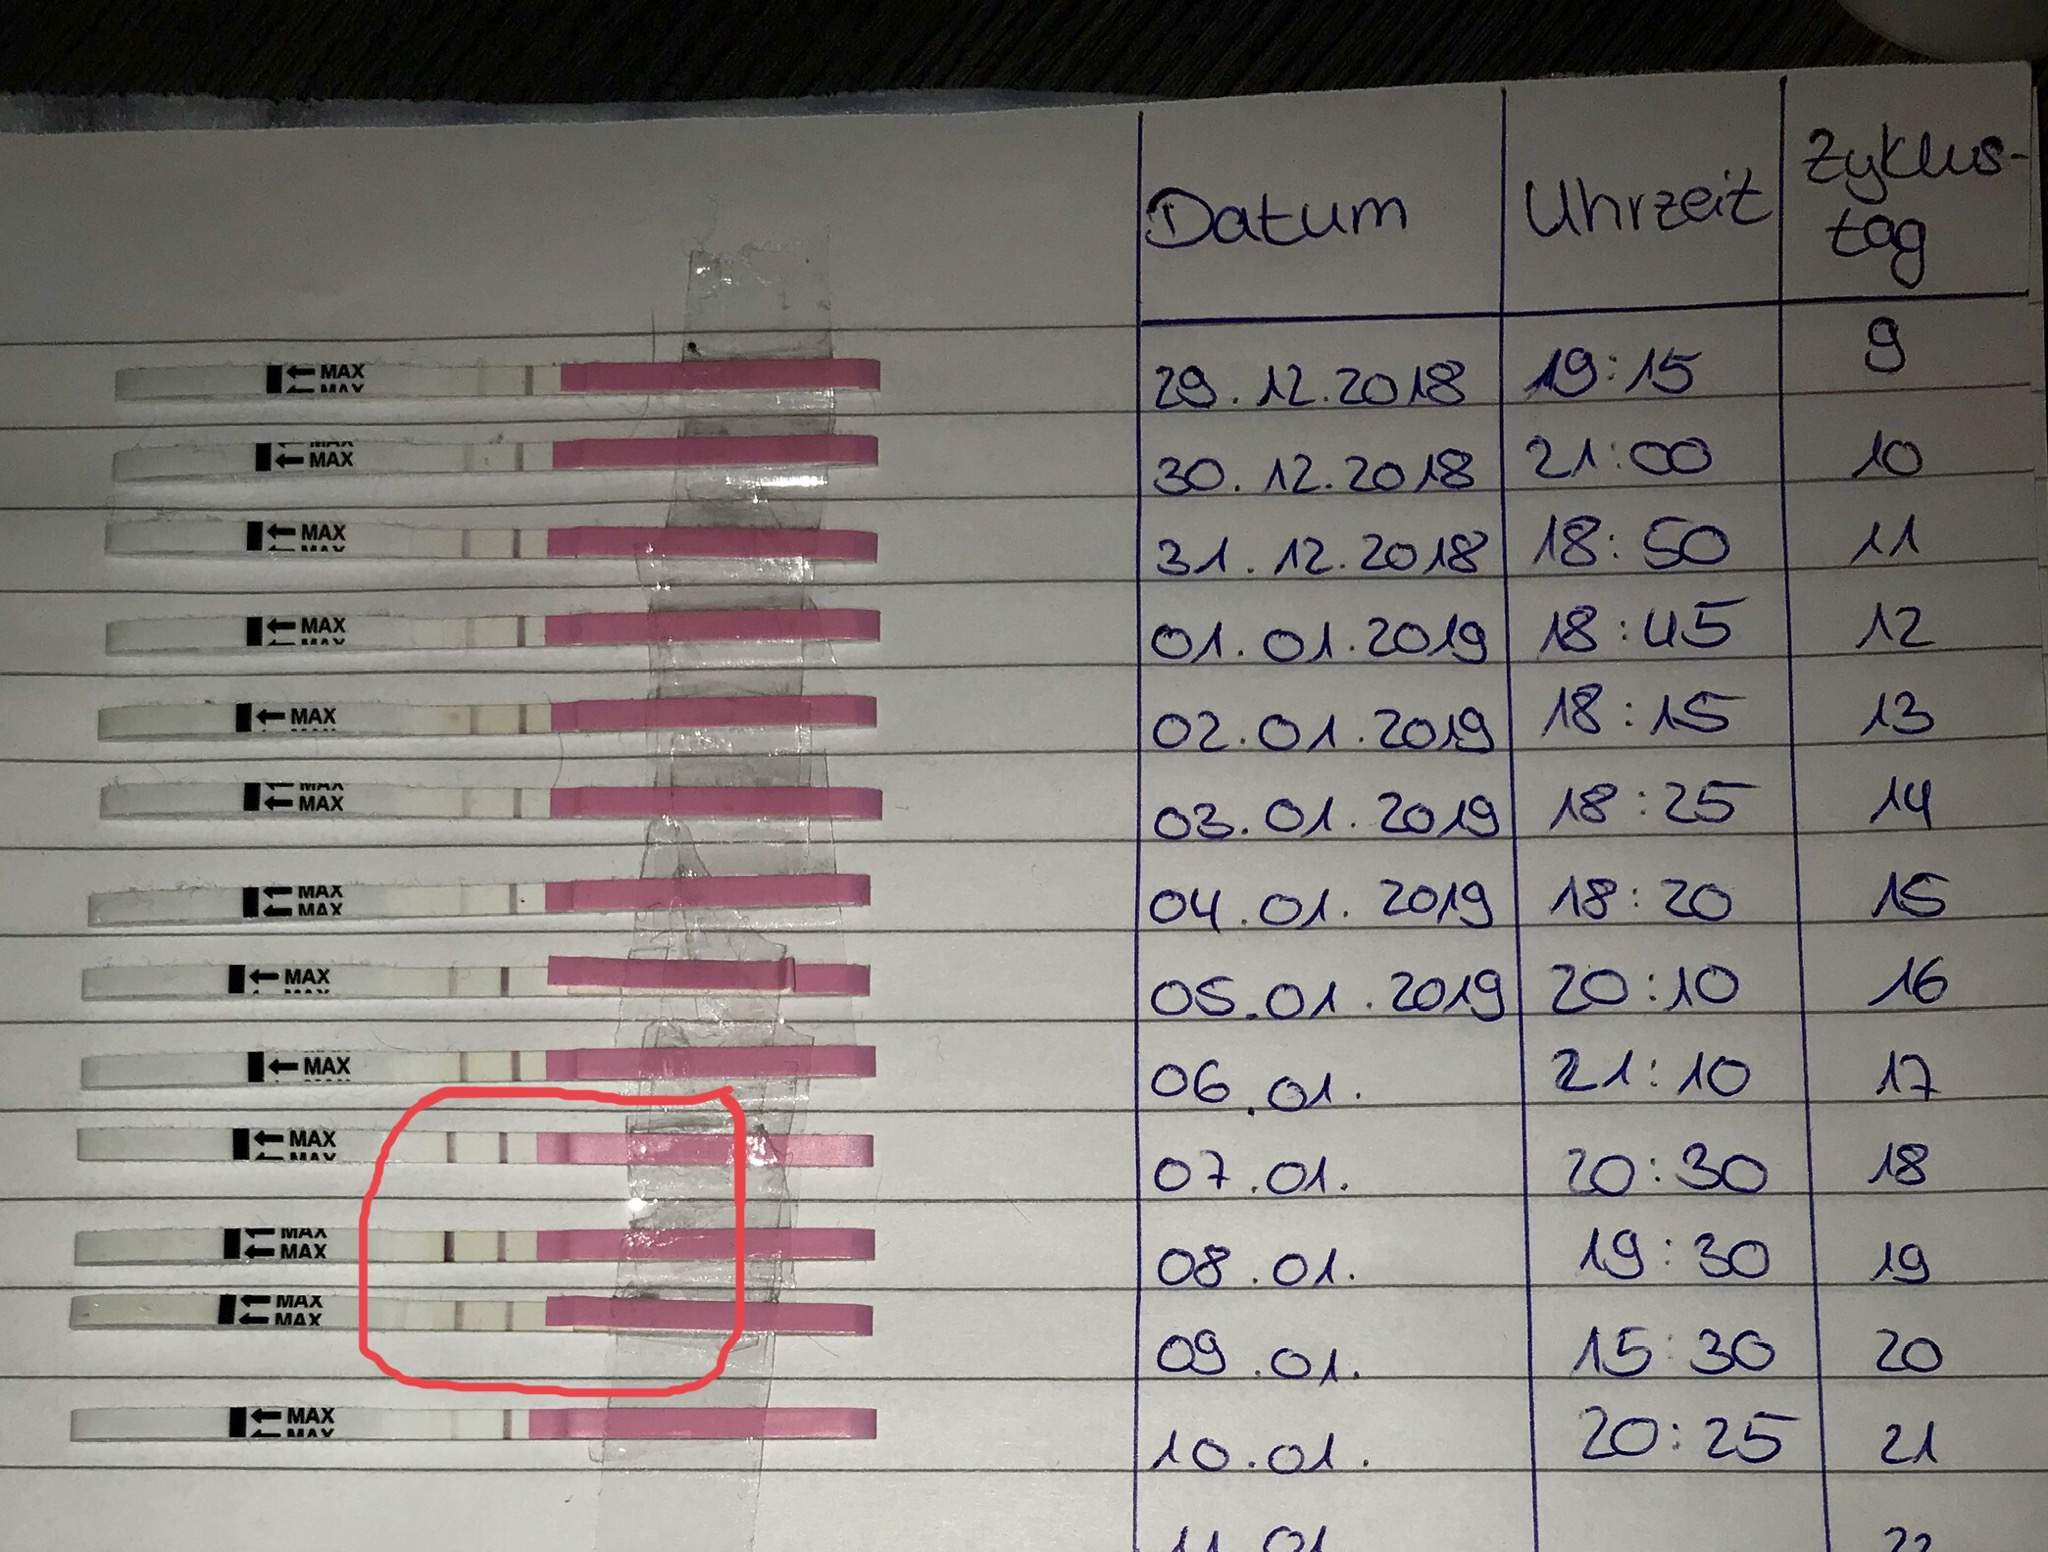 Datum Uhrzeit Zyklus-
tag
MAX 29.12.2018 19:15 9
MAX
MAX
MAX 30.12.2018 21:00 10
MAX 31.12.2018 18:50 11
MAX
MAX 01.01.2019 18:45 12
MAX
MAX 02.01.2019 18:15 13
MAX
MAX 03.01.2019 18:25 14
MAX
MAX 04.01.2019 18:20 15
MAX 05.01.2019 20:10 16
MAX
MAX 06.01. 21:10 17
MAX 07.01. 20:30 18
MAX
MAX
MAX 08.01. 19:30 19
MAX
MAX 09.01. 15:30 20
MAX 10.01. 20:25 21
MAX
11.01 22